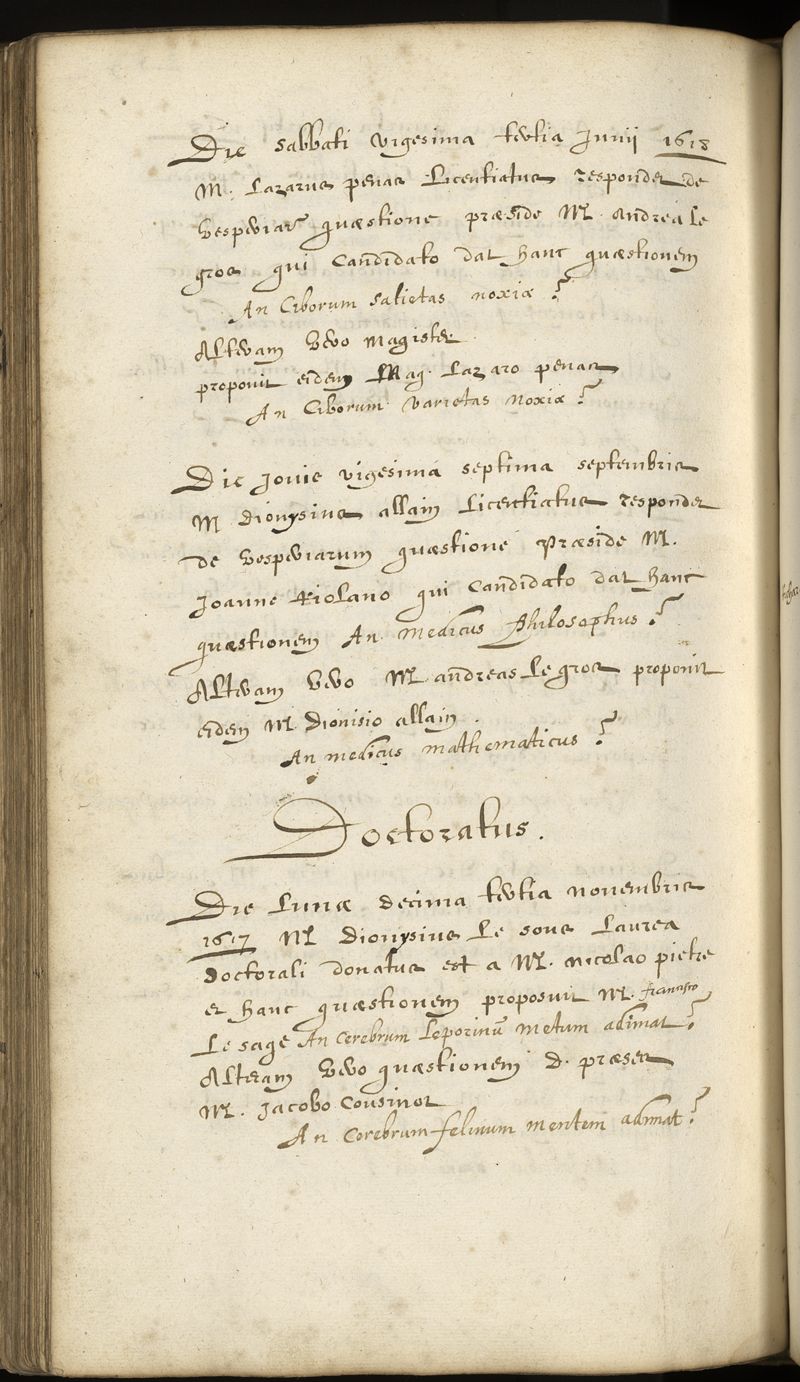 Die sabbati vigesima tertia Junii 1618
M. Lazarus penas Licentiatus respondet de
vesperiarũ quæstione præside M. Andrea le
gros qui Candidato dat hanc quæstionem
An Ciborum satietas noxia?
Alteram vero magister
proponit eidem Mag. Lazaro penas
An Ciborum varietas noxia?
Die Jouis vigesima septima septembris
M dionysius allain Licentiatus respondet
de vesperiarum quæstione præside M.
Joanne Riolano qui Candidato dat hanc
quæstionem An Medicus Philosophus?
Alteram vero M. andreas le gros proponit
eidem M. Dionisio allain.
An medicus mathematicus?
Doctoratus.
Die Lunæ decima tertia novembris
1617 M dionysius Le soue Laurea
doctorali donatus est a M. Nicolao pietre
et hanc quæstionem proposuit M. francisco
Le sage An Cerebrum Leporinũ metum adimat?
Alteram vero quæstionem d. præses
M. Jacobo Cousinot
An Cerebrum felinum mentem adimat?